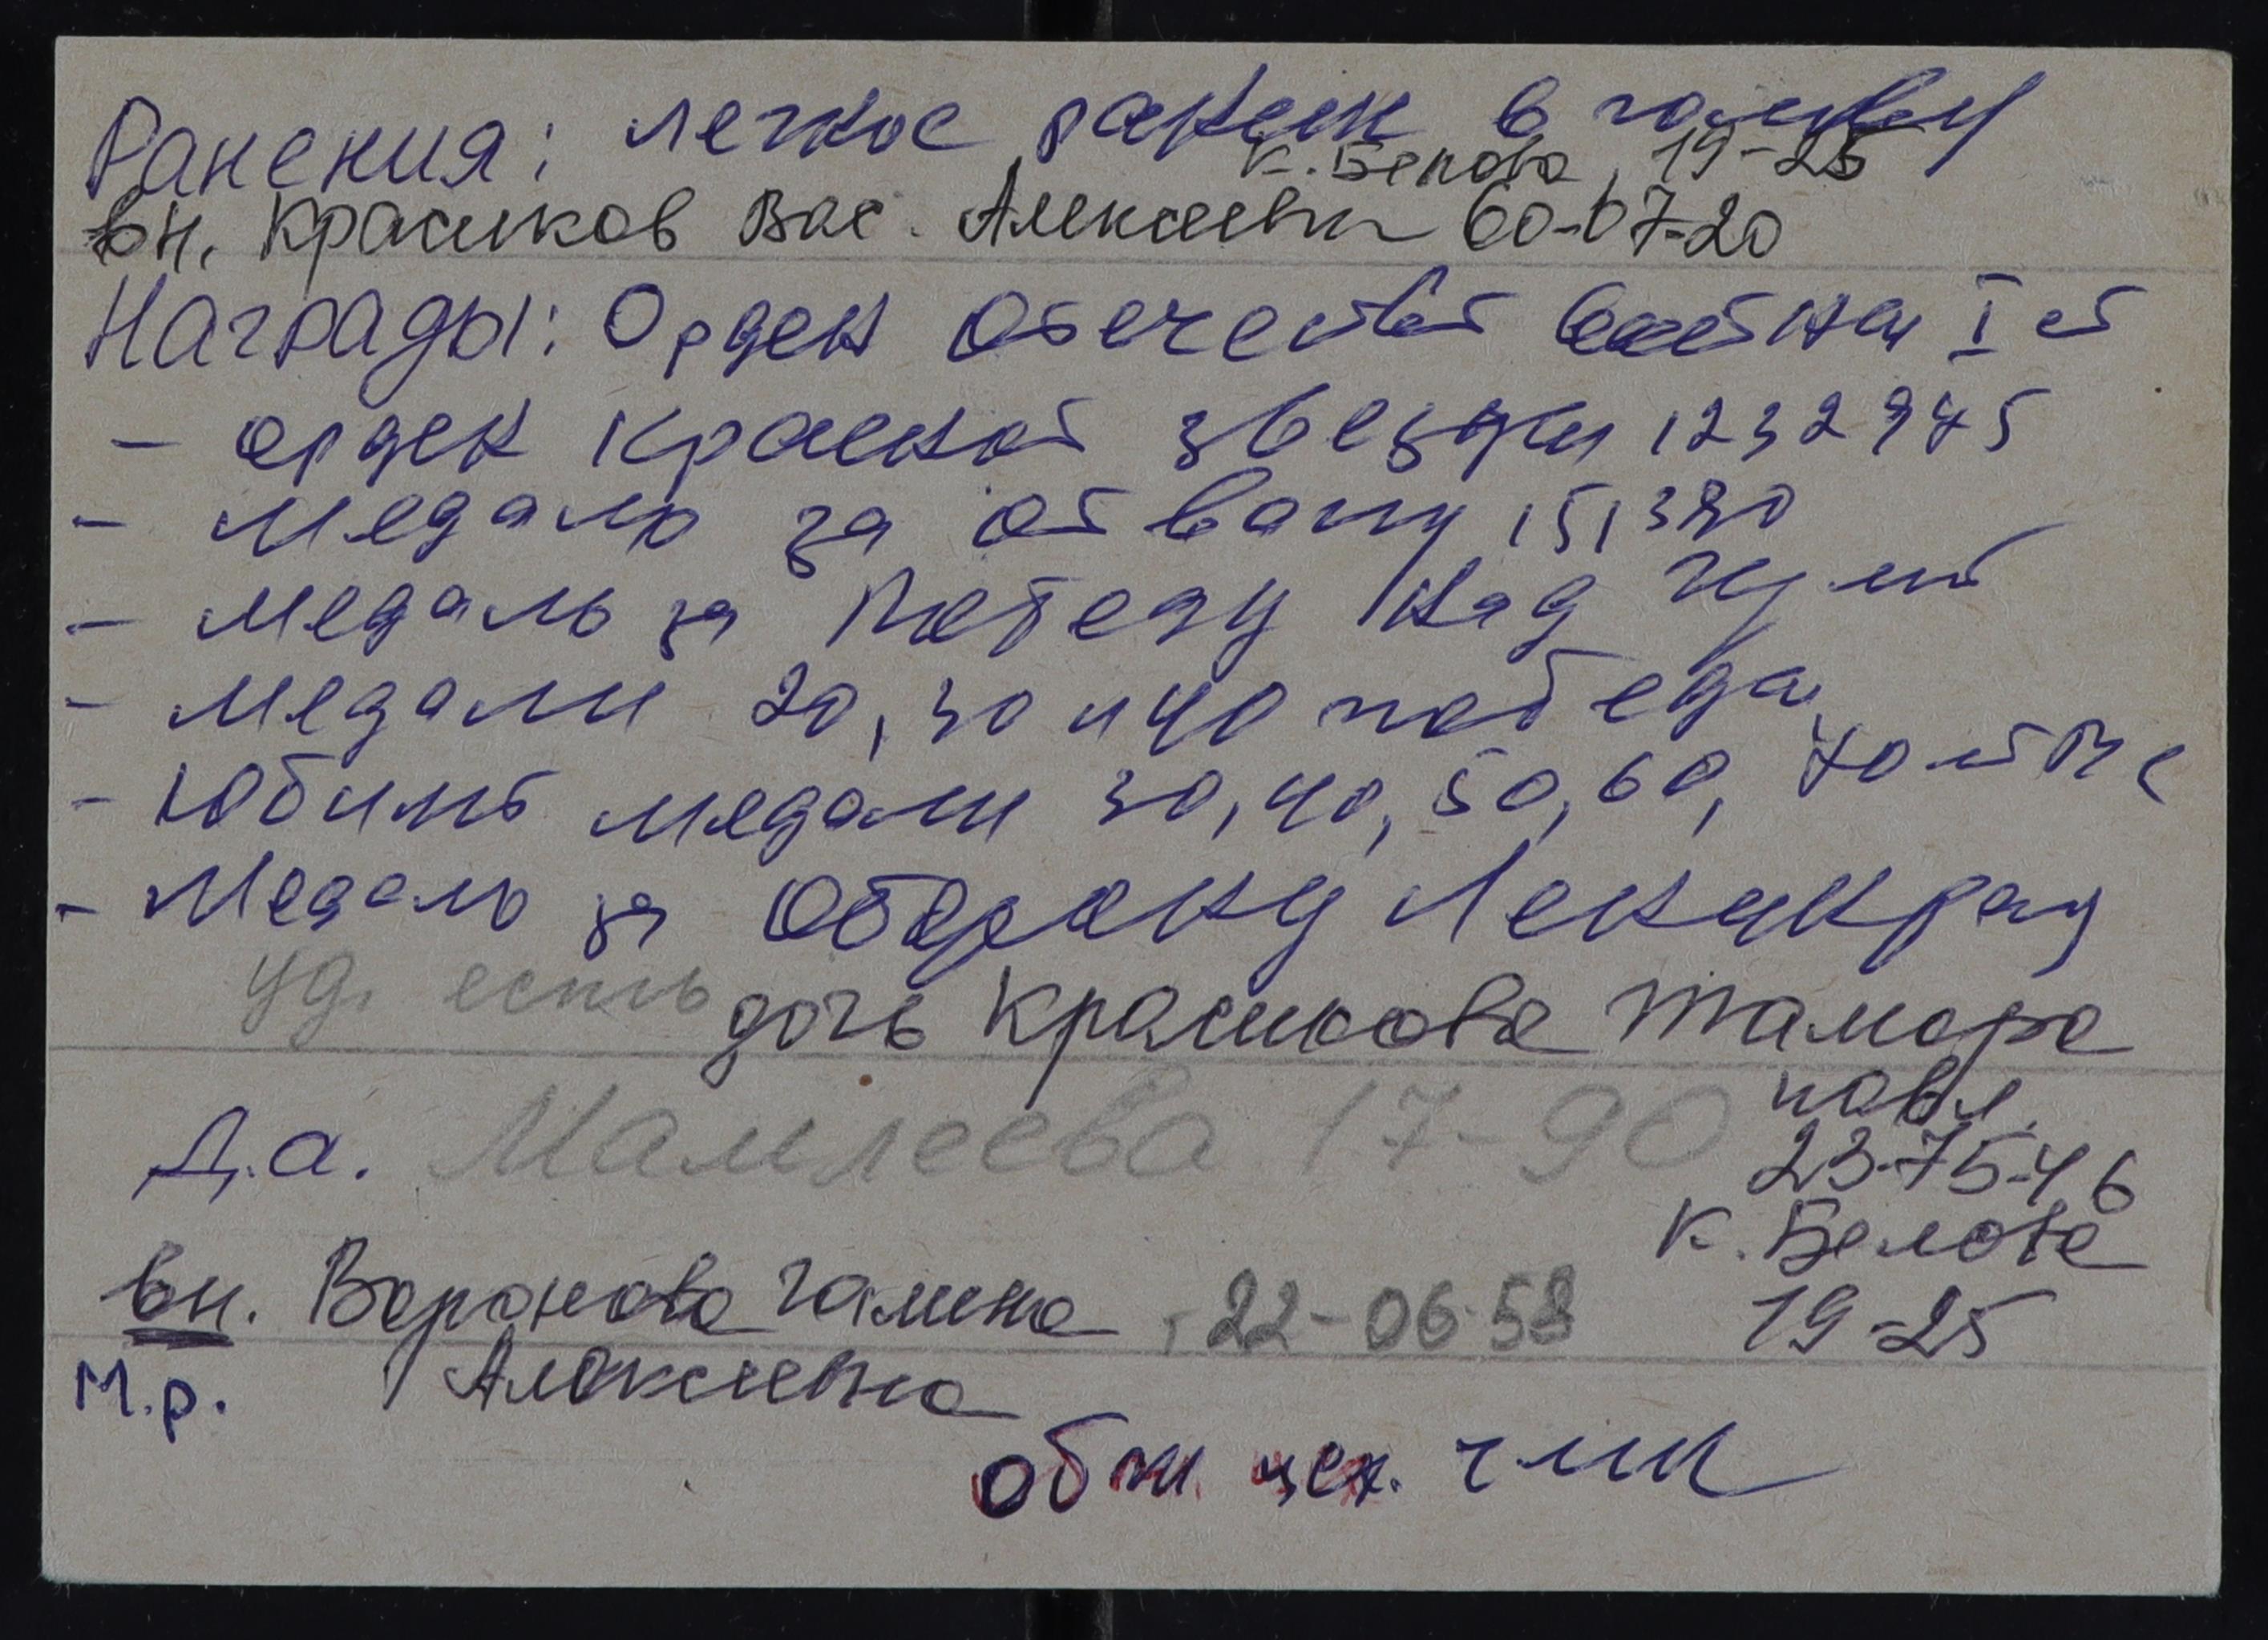 Ранения: легкое ранен в голову
К. Белова 19-25
вн. Красиков Вас. Алексеевич 60-67-20
Награды: Орден Отечеств войны I ст
- орден Красной звезды 1232945
- медаль за отвагу 151380
- медаль за Победу над Герм
- медали 20, 30 и 40 победы
- Юбил медали 30, 40, 50, 60, 70 лет
- Медаль за Оборону Ленинград
уд. есть
дочь Красикова Тамара
Павл.
Д.а. Мамлеева 17-90
23-75-46
К. Белова
19-25
вн. Воронова Галина
Алексеевна
22-06-58
М.р.
обж. цех.